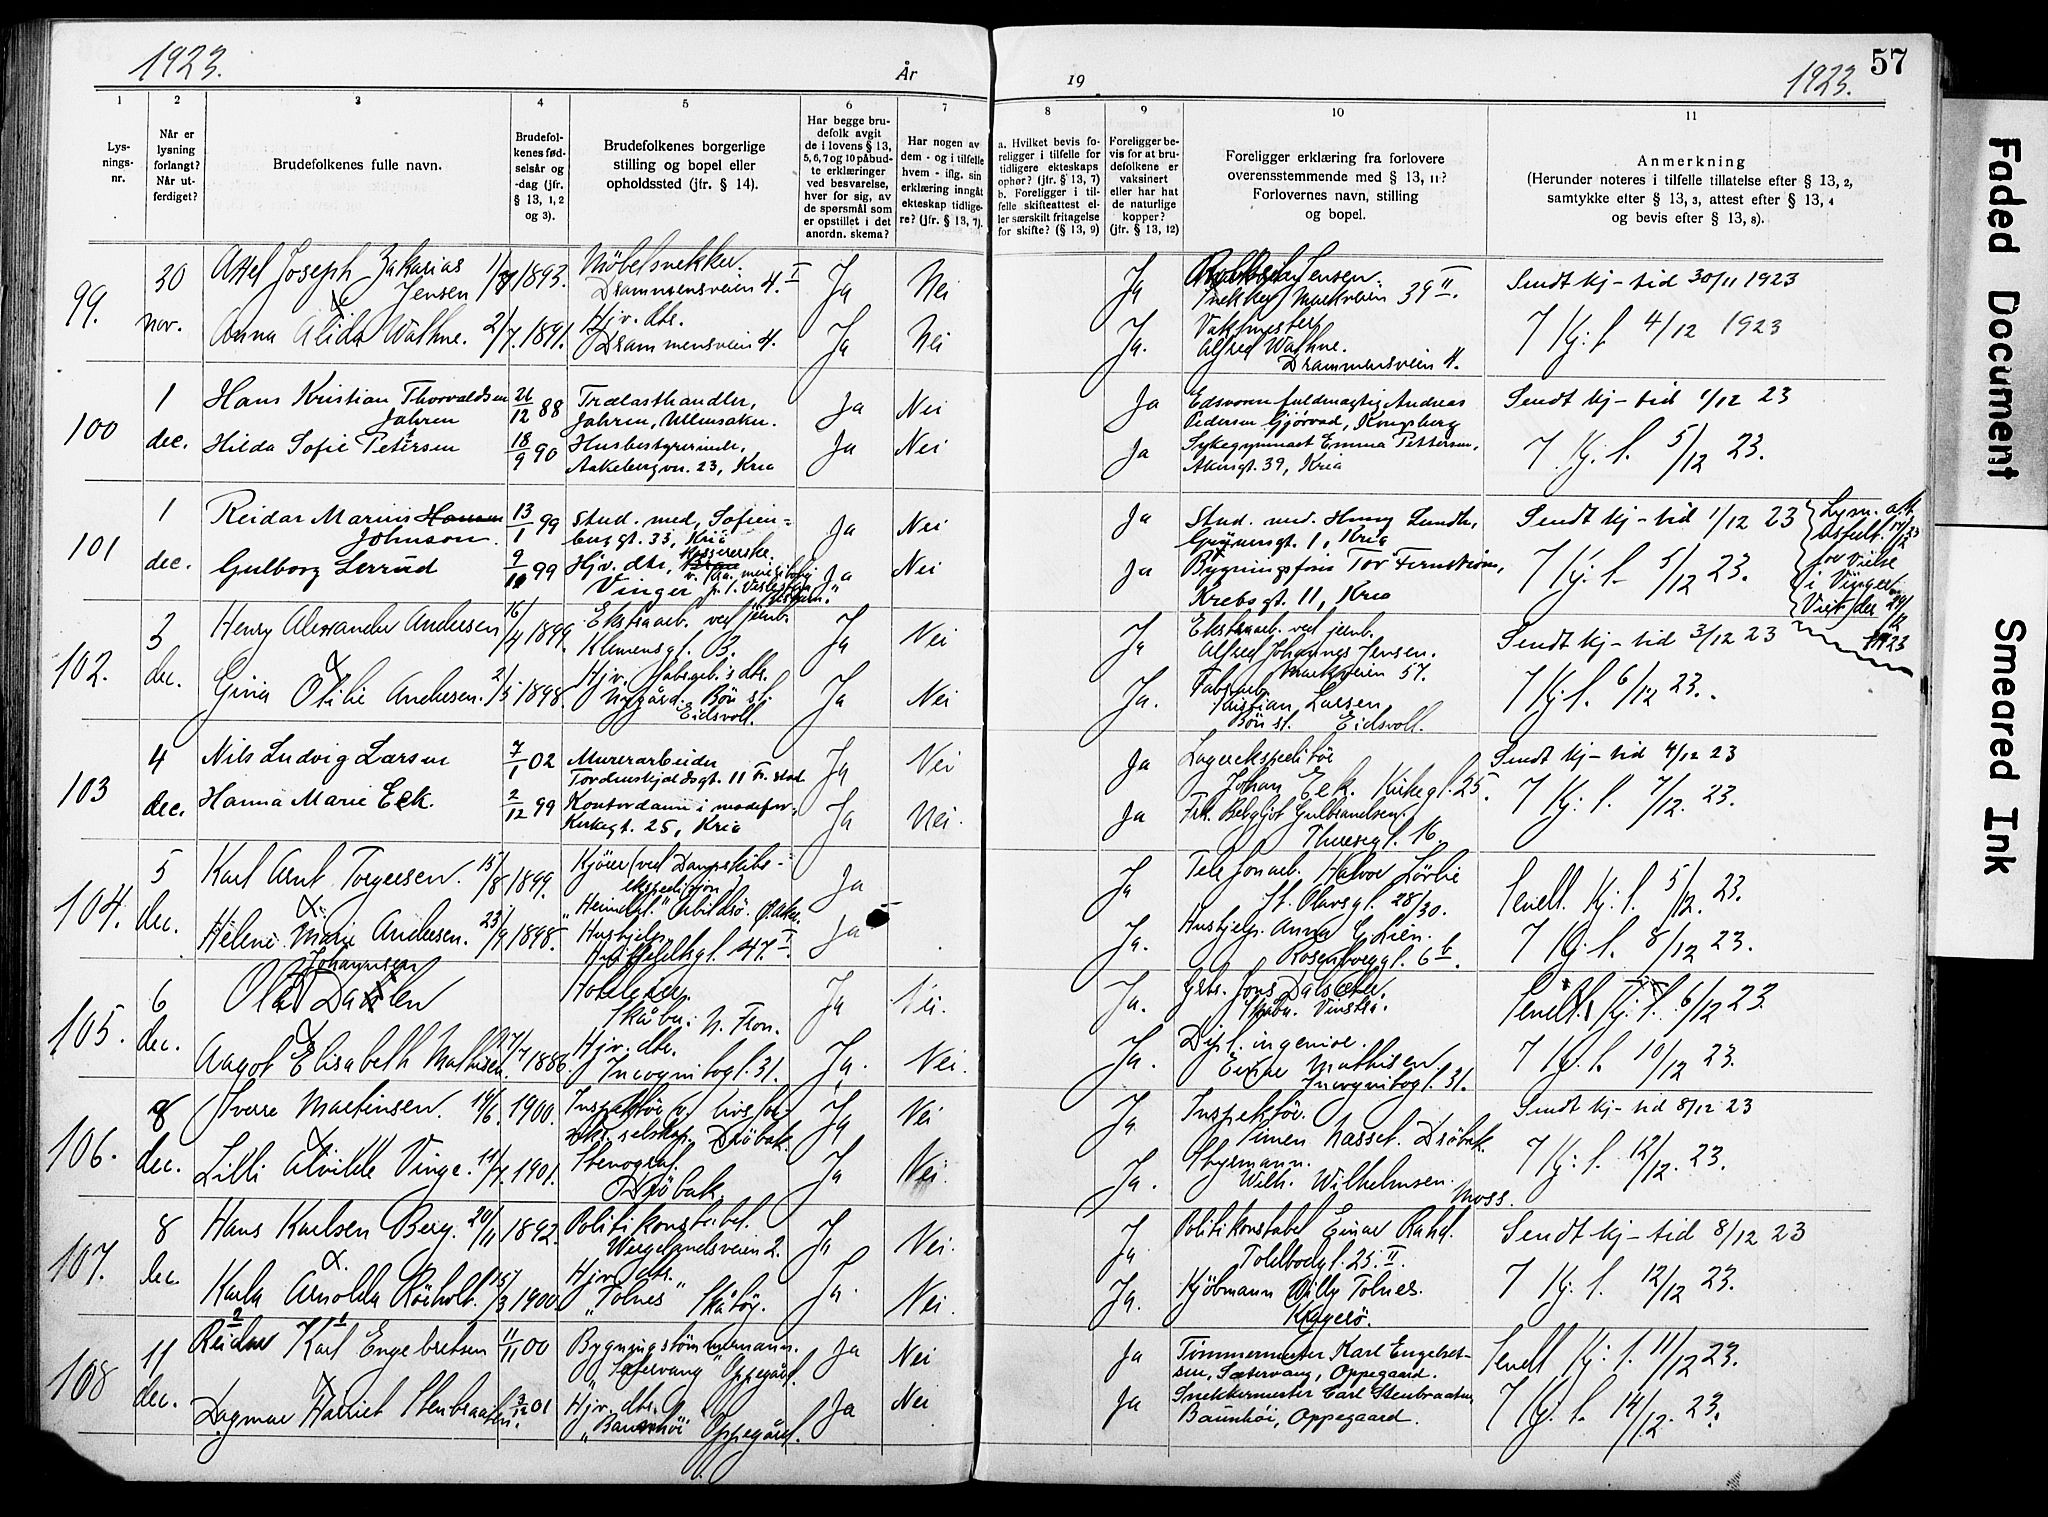 1923.
År
19
1923.
57
1
2
3
4
5
6
7
8
9
10
11
Lys-
nings-
nr.
Når er
lysning
forlangt?
Når ut-
ferdiget?
Brudefolkenes fulle navn.
Brudefol-
kenes fød-
selsår og
-dag (jfr.
§ 13, 1, 2
og 3).
Brudefolkenes borgerlige
stilling og bopel eller
opholdssted (jfr. § 14).
Har begge bru-
defolk avgit
de i lovens § 13,
5, 6, 7 og 10 påbud-
te erklæringer
ved besvarelse,
hver for sig, av
de spørsmål som
er opstillet i det
anordn. skema?
Har nogen av
dem - og i tilfelle
hvem - iflg. sin
erklæring inngåt
ekteskap tidlige-
re? (jfr. § 13, 7).
a. Hvilket bevis fo-
religger i tilfelle for
tidligere ekteskaps
ophør? (jfr. § 13, 7)
b. Foreligger i til-
felle skifteattest el-
ler særskilt fritagelse
for skifte? (§ 13, 9)
Foreligger be-
vis for at bru-
defolkene er
vaksinert
eller har hat
de naturlige
kopper?
(jfr. § 13, 12)
Foreligger erklæring fra forlovere
overensstemmende med § 13, 11?
Forlovernes navn, stilling
og bopel.
Anmerkning
(Herunder noteres i tilfelle tillatelse efter § 13, 2,
samtykke efter § 13, 3, attest efter § 13, 4
og bevis efter § 13, 8).
99.
30
nov.
Axel Joseph Zakarias
Jensen
1893.
Møbelsnekker.
Drammensveien 4. I
Ja
Nei
Ja
Jensen.
Snekker Markveien 39 II.
Sendt kj-tid 30/11 1923
Anna Alida Wathne.
2/7. 1891.
Hjv. dtr.
Drammensveien 4.
Ja
Nei
Ja.
Vaktmester
Alfred Wathne.
Drammensveien 4.
7 Kj: l. 4/12 1923
100
1
dec.
Hans Kristian Thorvaldsen
Jahren
26/12 88
Trælasthandler,
Jahren, Ullensaker.
Ja
Nei
Ja
Edsvoren fuldmægtig Andreas
Pedersen Gjørvad, Kongsberg
Sendt kj-tid 1/12 23
Hilda Sofie Petersen
18/9 90
Husbestyrerinde,
Aakebergvn. 23, Kria
Ja
Nei
Ja
Sykegymnast Emma Pettersen,
Akersgt. 39, Kria
7. Kj. l. 5/12 23.
101
1
dec.
Reidar Marius Hansen
Johnson.
13/1 99
Stud. med, Sofien-
berggt. 33, Kria
Ja
Nei
Ja
Stud. med. Lundh,
Grünersgt. 1, Kria
Sendt kj-tid 1/12 23
Lysn. att.
for Vielse
i Vinger
Gulborg Lerrud
9/10 99
Hjv. dtr,
Vinger
Ja
Nei
Ja
Tor Fernström,
Krebsgt. 11, Kria
7 Kj. l. 5/12 23.
102.
3
dec.
Henry Alexander Andersen
16/4 1899.
Ekstraarb. ved jernb.
Klemensgt. 3.
Ja
Nei
Ja
Ekstraarb. ved jernb.
Alfred Johannes Jensen.
Markveien 57.
Sendt kj-tid 3/12 23
Gina Otilie Andersen.
2/5 1898.
Hjv. dtr.
Nygård. Bøn st.
Eidsvoll.
Ja
Nei
Ja.
Fabrarb.
Kristian Larsen
Bøn st. Eidsvoll.
7 Kj. l. 6/12 23.
103
4
dec.
Nils Ludvig Larsen
7/1 02
Murerarbeider
Tordenskjoldsgt. 11 Fr.stad
Ja
Nei
Ja
Lagerekspeditør
Johan Eek. Kirkegt. 25.
Sendt kj-tid 4/12 23
Hanna Marie Eek.
2/12 99
Kontordame i
Kirkegt. 25, Kria
Ja
Nei.
Ja
Frk. Bergljot Gulbrandsen.
Theresgt. 16.
7 Kj: l. 7/12. 23.
104.
5
dec.
Karl Arnt Torgersen.
15/8 1899.
Kjører (ved Dampskibs-
ekspedisjon)
Abildsø. Ø. Aker.
Ja
Ja
Telefonarb. Halvor Lørlie
St. Olavsgt. 28/30.
Sendt. Kj. l. 5/12. 23.
Helene Marie Andersen.
23/9 1898.
Hushjelp
Huitfeldtsgt. 47. I
Ja
Ja.
Hushjelp. Anna G. Lien.
Rosenborggt. 6 b.
7 Kj. l. 8/12 23.
105.
6
dec.
Johannesen
Ola Dahlen
Hoteleier.
Skåbu: N. Fron.
Ja
Nei.
Ja.
Gbr. Jons Dalsæter.
Skåbu. Vinstra.
Sendt. Kj. l. 6/12 23.
Aagot Elisabeth Mathisen
7/7 1886.
Hjv. dtr.
Incognitogt. 31.
Ja.
Nei.
Ja.
Dipl. ingeniør.
Einar Mathisen.
Incognitogt. 31.
7 Kj. l. 10/12 23.
106.
8
dec.
Sverre Martinsen.
19/6. 1900.
Inspektør v. livsfor-
sikr. selskap. Drøbak.
Ja
Nei
Ja
Inspektør.
Simen Nasset. Drøbak.
Sendt kj-tid 8/12 23
Lilli Alvilde Vinge.
11/7. 1901.
Stenograf.
Drøbak.
Ja
Nei.
Ja.
Styrmann.
Wilh. Wilhelmsen.
Moss.
7 Kj: l. 12/12. 23.
107.
8
dec.
Hans Karlsen Berg.
20/11 1892.
Politikonstabel.
Wergelandsveien 2.
Ja
Nei.
Ja
Politikonstabel Einar Rahd.
Toldbodgt. 25. II
Sendt kj-tid 8/12 23
Karla Arnolda Röeholt.
15/3 1900.
Hjv. dtr.
"Tolnes" Skåtøy.
Ja.
Nei.
Ja.
Kjøbmann Willy Tolnes.
Kragerø.
7 Kj. l. 12/12 23.
108
11
dec.
Reidar Karl Engebretsen
11/11 00
Bygningstømmermann.
"Sætervang" Oppegård.
Ja
Nei
Ja
Tømmermester Karl Engebret-
sen, Sætervang, Oppegaard.
Sendt Kj: l. 11/12 23.
Dagmar Harriet Stenbraaten.
3/12 01
Hjv. dtr.
"Baunhøi" Oppegård.
Ja
Nei
Ja
Snekkermester Carl Stenbraaten
Baunhøi, Oppegaard.
7 Kj. l. 14/12. 23.
Faded Document
Smeared Ink